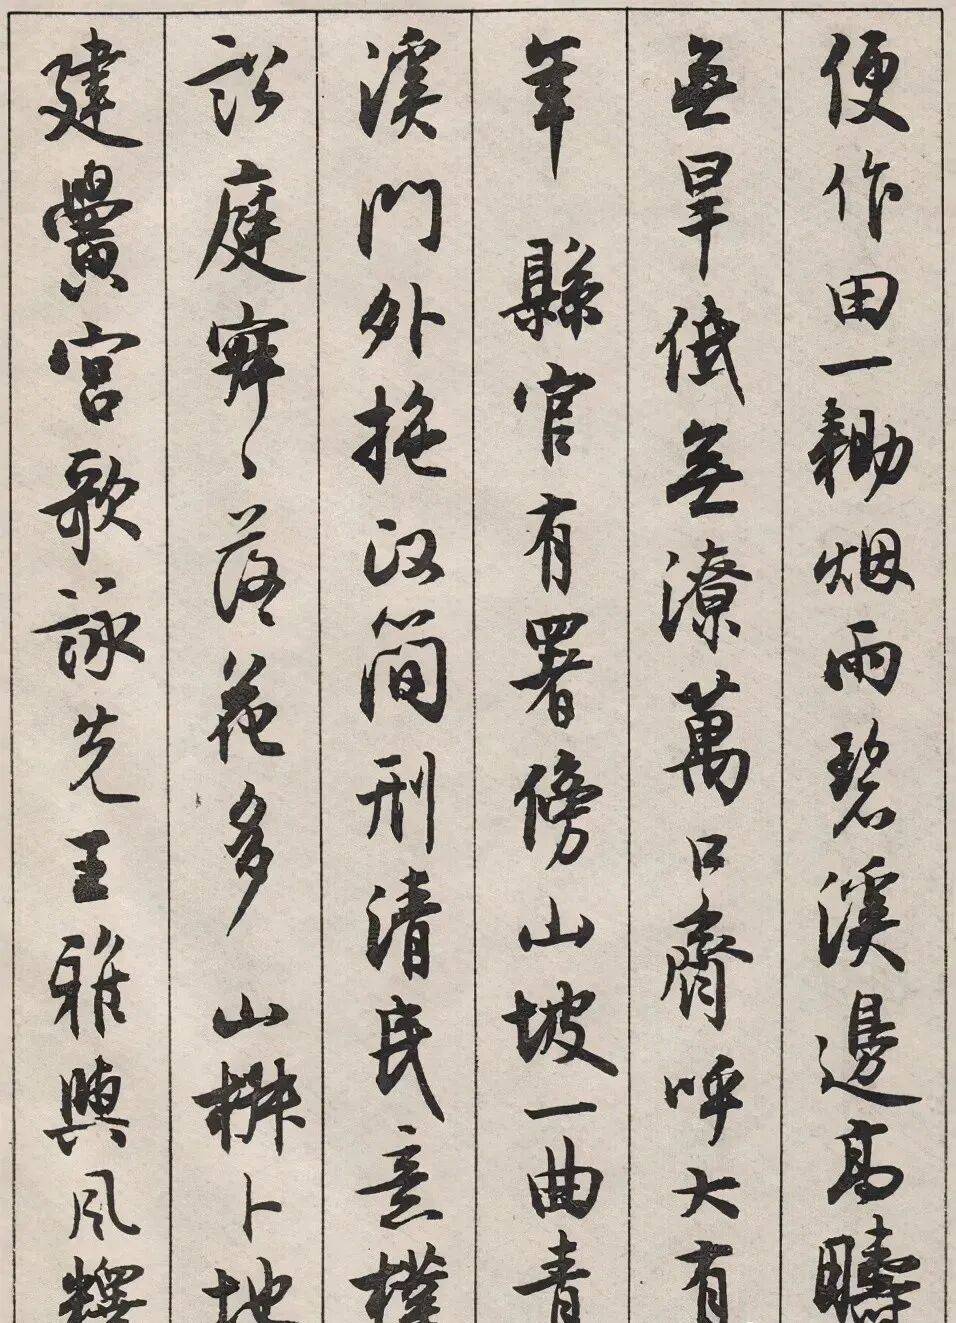 便作田一耡烟雨碧溪邊高疇
無旱低無潦萬口齊呼大有
年 縣官有署傍山坡一曲青
溪門外拖政簡刑清民意樸
訟庭寂〻落花多 山椒卜地
建黌宮歌詠先王雅與風釋